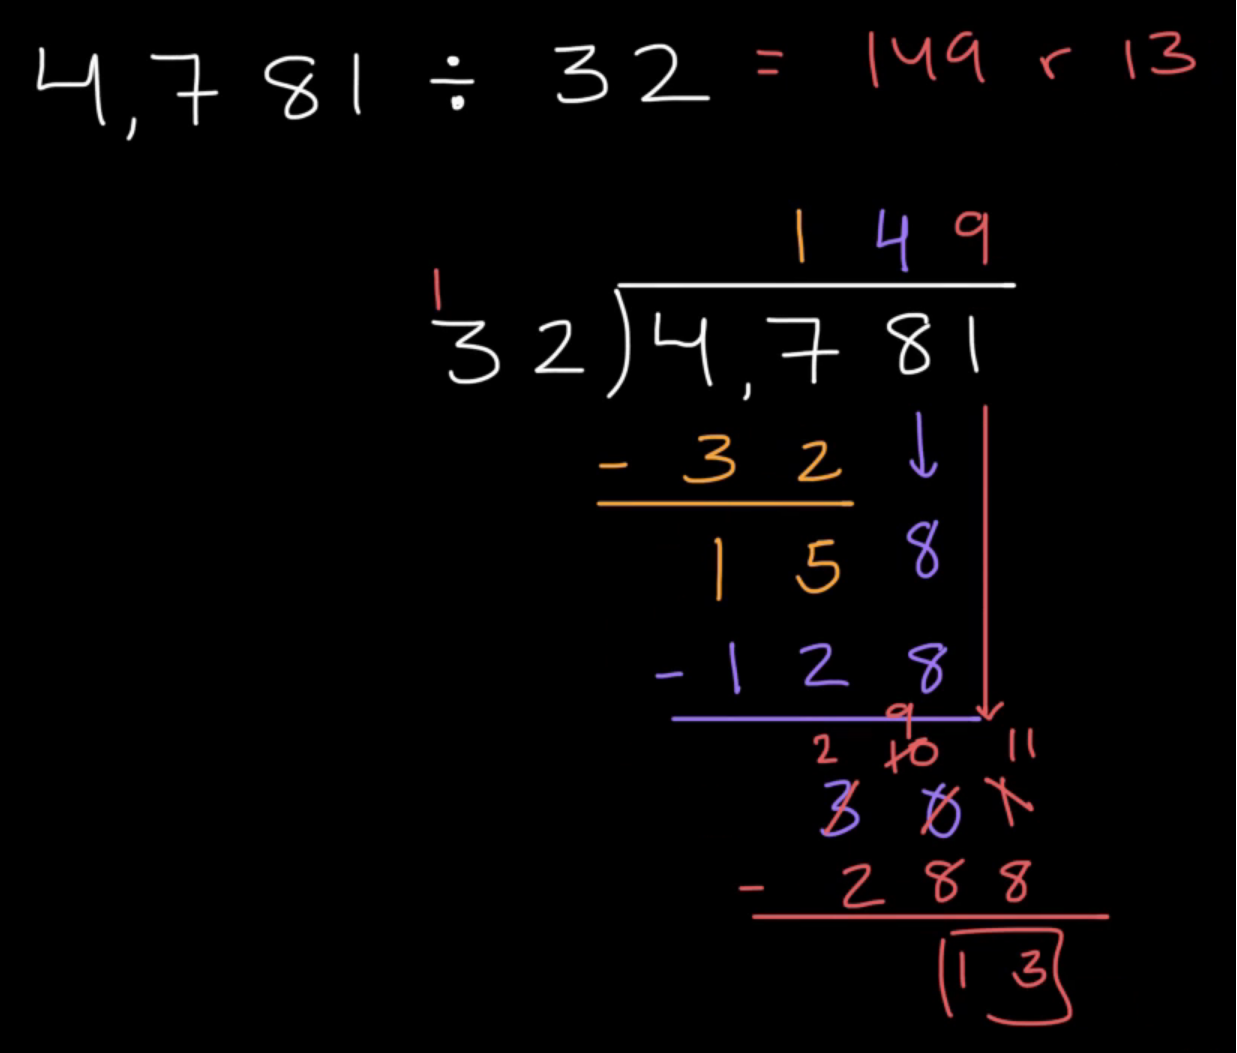 4,781 ÷ 32 = 149 r 13
1 4 9
1
32)4,781
- 3 2
1 5 8
- 1 2 8
9
2 10 11
3 0 1
- 2 8 8
1 3